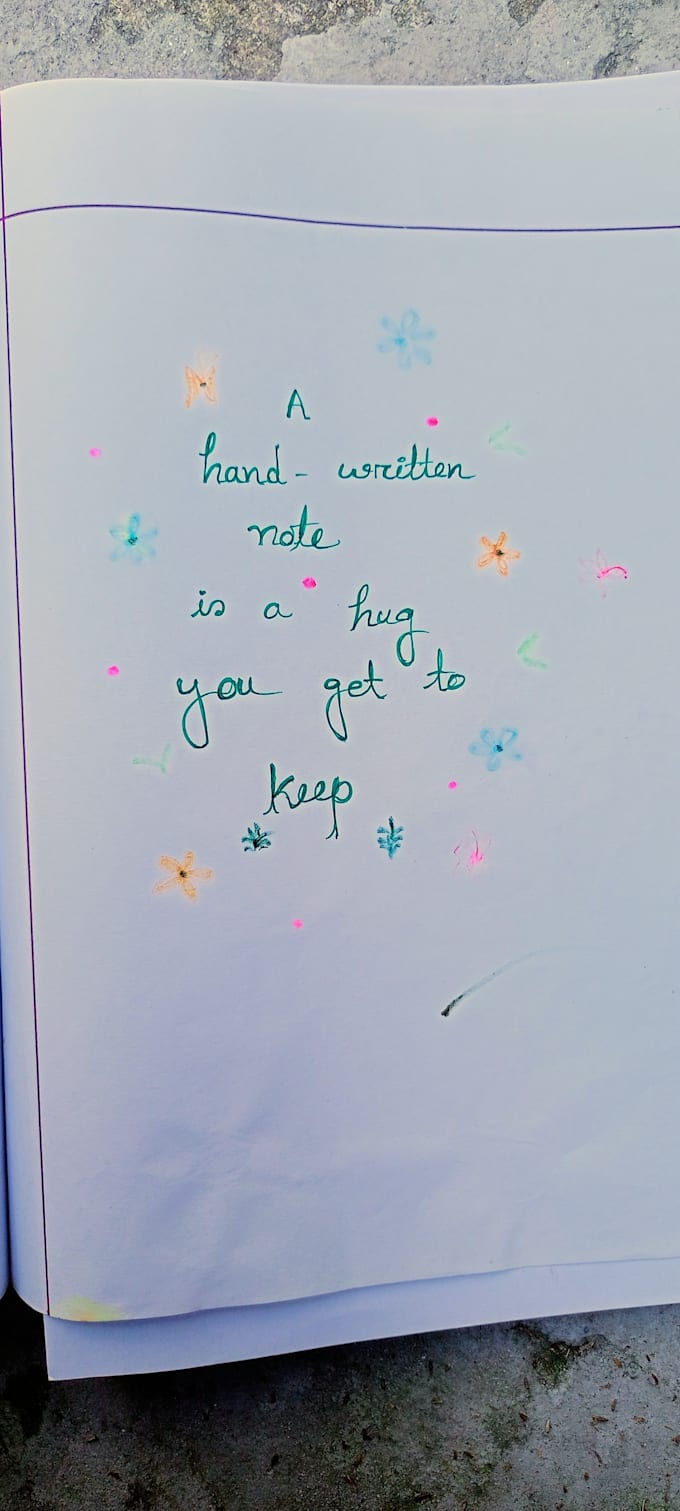 A
hand- written
note
is a hug
you get to
keep